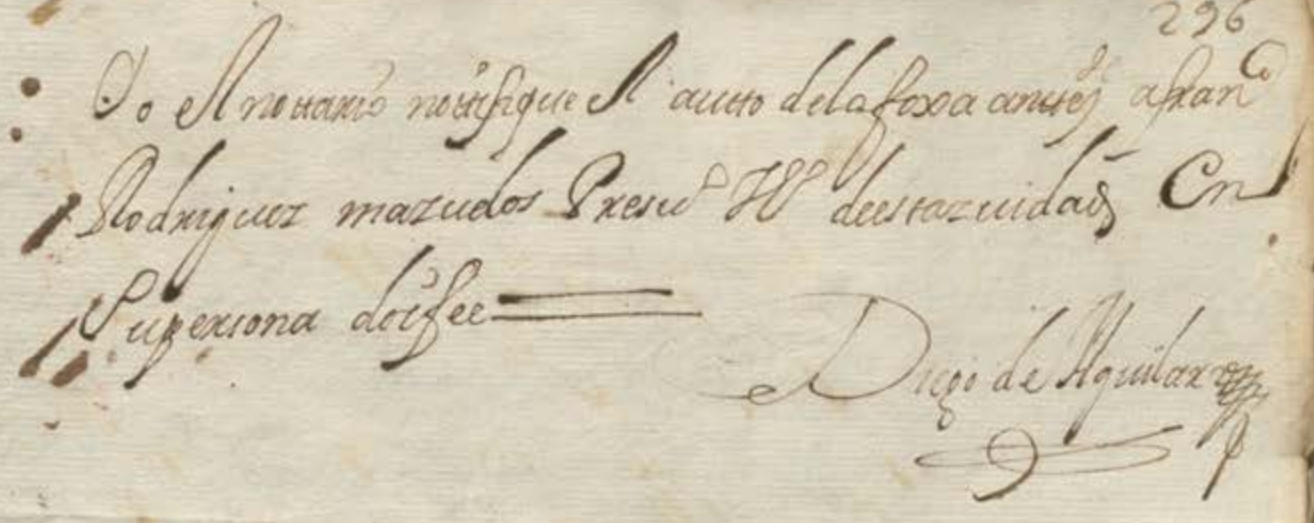 296
Yo el nottario nottifique el autto de la foxa antes de a fran^co
Rodriguez mazuelos Pres^vo V^o de esta zuidad En
Su persona doi fee =
Diego de Aguilar